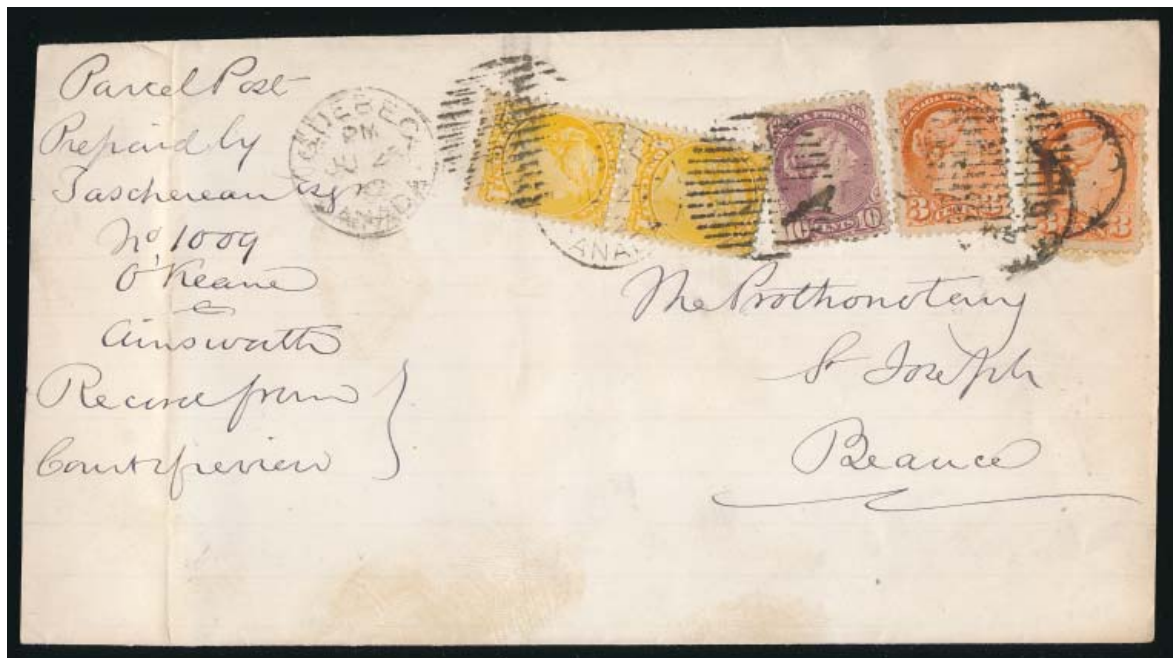 Parcel Post
Prepaid by
Taschereau Esqr
No 1009
O'Keane
Ainsworth
Record from
Court of review
QUEBEC
PM
CANADA
CANADA POSTAGE
10 CENTS 10
3 CENTS
3
The Prothonotary
St Joseph
Beauce